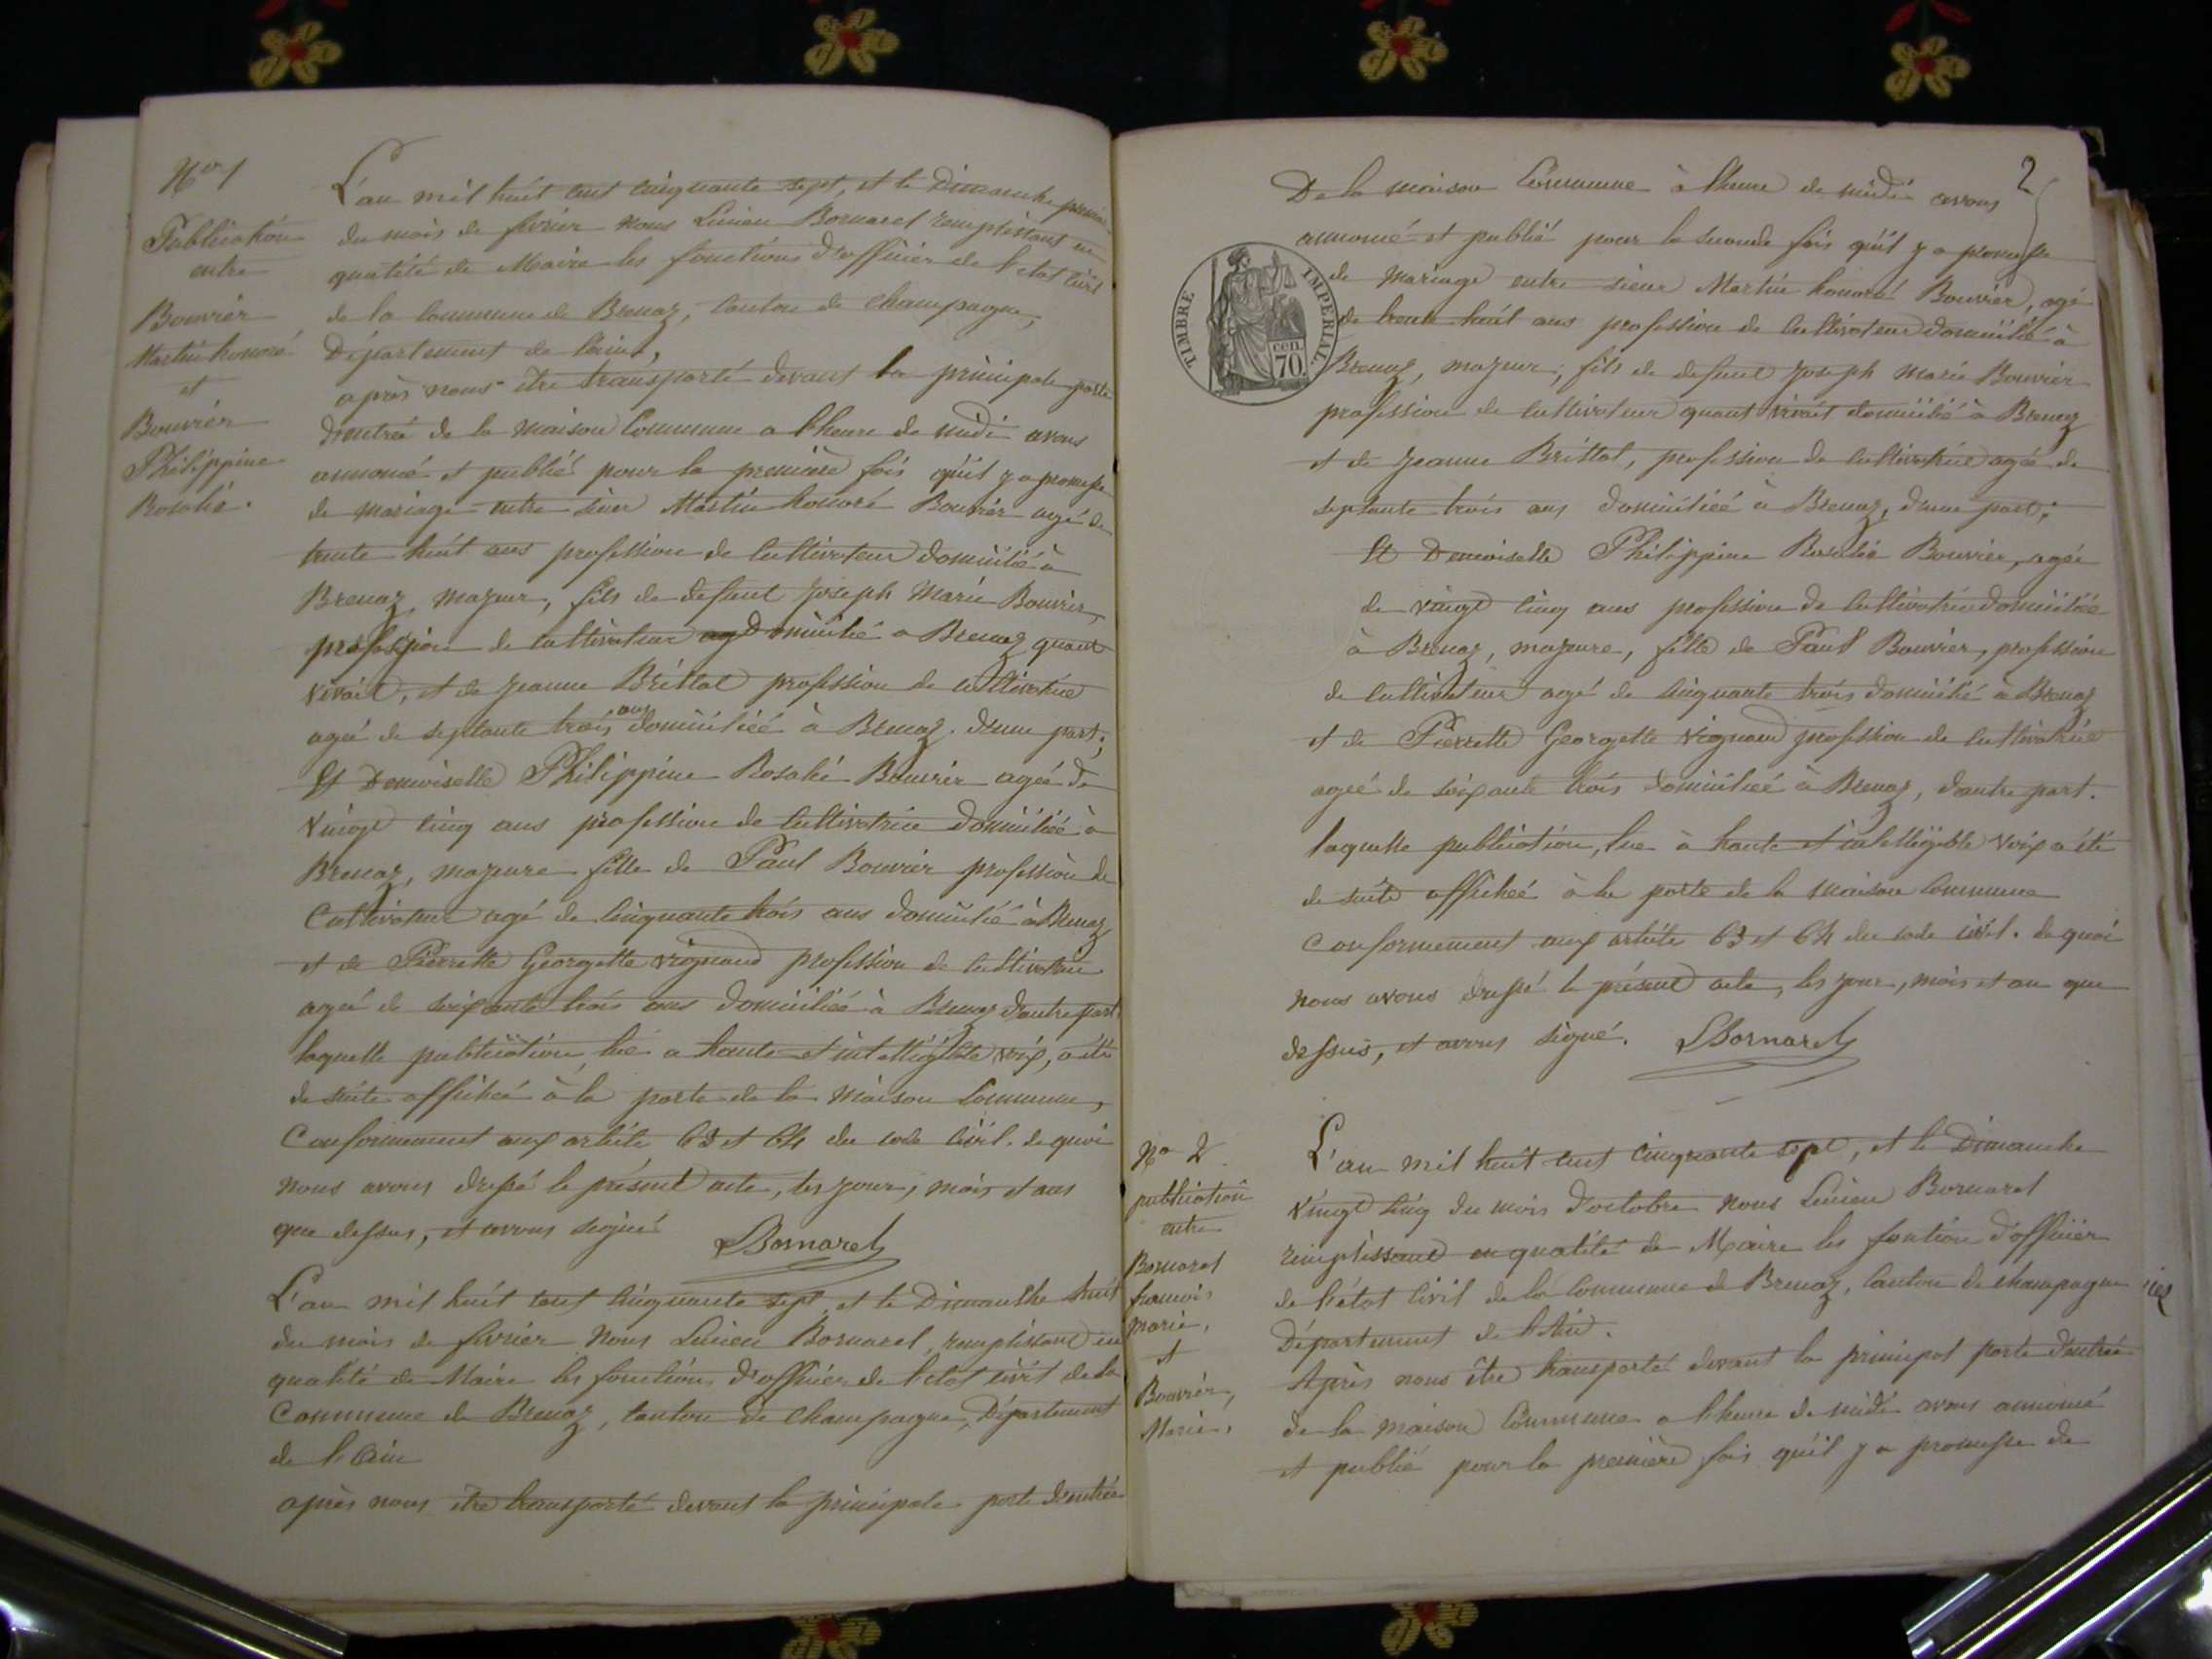 No 1
Publication
entre
Bouvier
Martin honoré
et
Bouvier
Philippine
Rosalie.
L'an mil huit cent cinquante sept, et le Dimanche premier
du mois de fevrier nous Lucien Bornarel remplissant en
qualité de Maire les fonctions d'officier de l'etat civil
de la Commune de Brenaz, Canton de Champagne,
Département de l'ain,
après nous être transporté devant la principale porte
d'entrée de la maison Commune a l'heure de midi avons
annoncé et publié pour la première fois qu'il y a promesse
de mariage entre sieur Martin honoré Bouvier agé de
trente huit ans profession de Cultivateur domicilié à
Brenaz, majeur, fils de defunt Joseph Marie Bouvier,
profession de cultivateur domicilié a Brenaz quant
vivait, et de Jeanne Brillat profession de cultivatrice
agée de septante trois ans domiciliée à Brenaz. d'une part;
Et Demoiselle Philippine Rosalie Bouvier agée de
vingt cinq ans profession de Cultivatrice domiciliée à
Brenaz, majeure fille de Paul Bouvier profession de
Cultivateur agé de Cinquante trois ans domicilié à Brenaz
et de Pierrette Georgette vignand profession de Cultivatrice
agée de soixante trois ans domiciliée à Brenaz d'autre part.
laquelle publication lue a haute et intelligible voix, a été
de suite affichée à la porte de la maison Commune,
Conformement aux article 63 et 64 du code Civil. de quoi
nous avons dressé le présent acte, les jour, mois et an
que dessus, et avons signé LBornarel
L'an mil huit cent Cinquante sept, et le Dimanche huit
du mois de fevrier nous Lucien Bornarel, remplissant en
qualité de Maire les fonctions d'officier de l'etat civil de la
Commune de Brenaz, Canton de Champagne, Département
de l'ain
après nous être transporté devant la principale porte d'entrée
2
De la maison Commune à l'heure de midi avons
annoncé et publié pour la seconde fois qu'il y a promesse
de mariage entre sieur Martin honoré Bouvier, agé
de trente huit ans profession de Cultivateur domicilié à
Brenaz, majeur, fils de defunt Joseph Marie Bouvier
profession de Cultivateur quant vivait domicilié à Brenaz
et de Jeanne Brillat, profession de Cultivatrice agée de
septante trois ans domiciliée à Brenaz, d'une part;
Et Demoiselle Philippine Rosalie Bouvier, agée
de vingt cinq ans profession de Cultivatrice domiciliée
à Brenaz, majeure, fille de Paul Bouvier, profession
de Cultivateur agé de Cinquante trois domicilié à Brenaz
et de Pierrette Georgette vignand profession de Cultivatrice
agée de soixante trois domiciliée à Brenaz, d'autre part.
laquelle publication, lue à haute et intelligible voix a été
de suite affichée à la porte de la maison Commune
Conformement aux article 63 et 64 du code civil. de quoi
nous avons dressé le présent acte, les jour, mois et an que
dessus, et avons signé. LBornarel
TIMBRE IMPERIAL.
70 cen.
No 2
publication
entre
Bornarel
francois
marie,
et
Bouvier,
Marie.
L'an mil huit cent Cinquante sept, et le Dimanche
vingt Cinq du mois d'octobre nous Lucien Bornarel
remplissant en qualité de Maire les fontion d'officier
de l'état Civil de la Commune de Brenaz, Canton de Champagne
Département de l'Ain.
Après nous être transporté devant la principal porte d'entrée
de la maison Commune a l'heure de midi avons annoncé
et publié pour la première fois qu'il y a promesse de